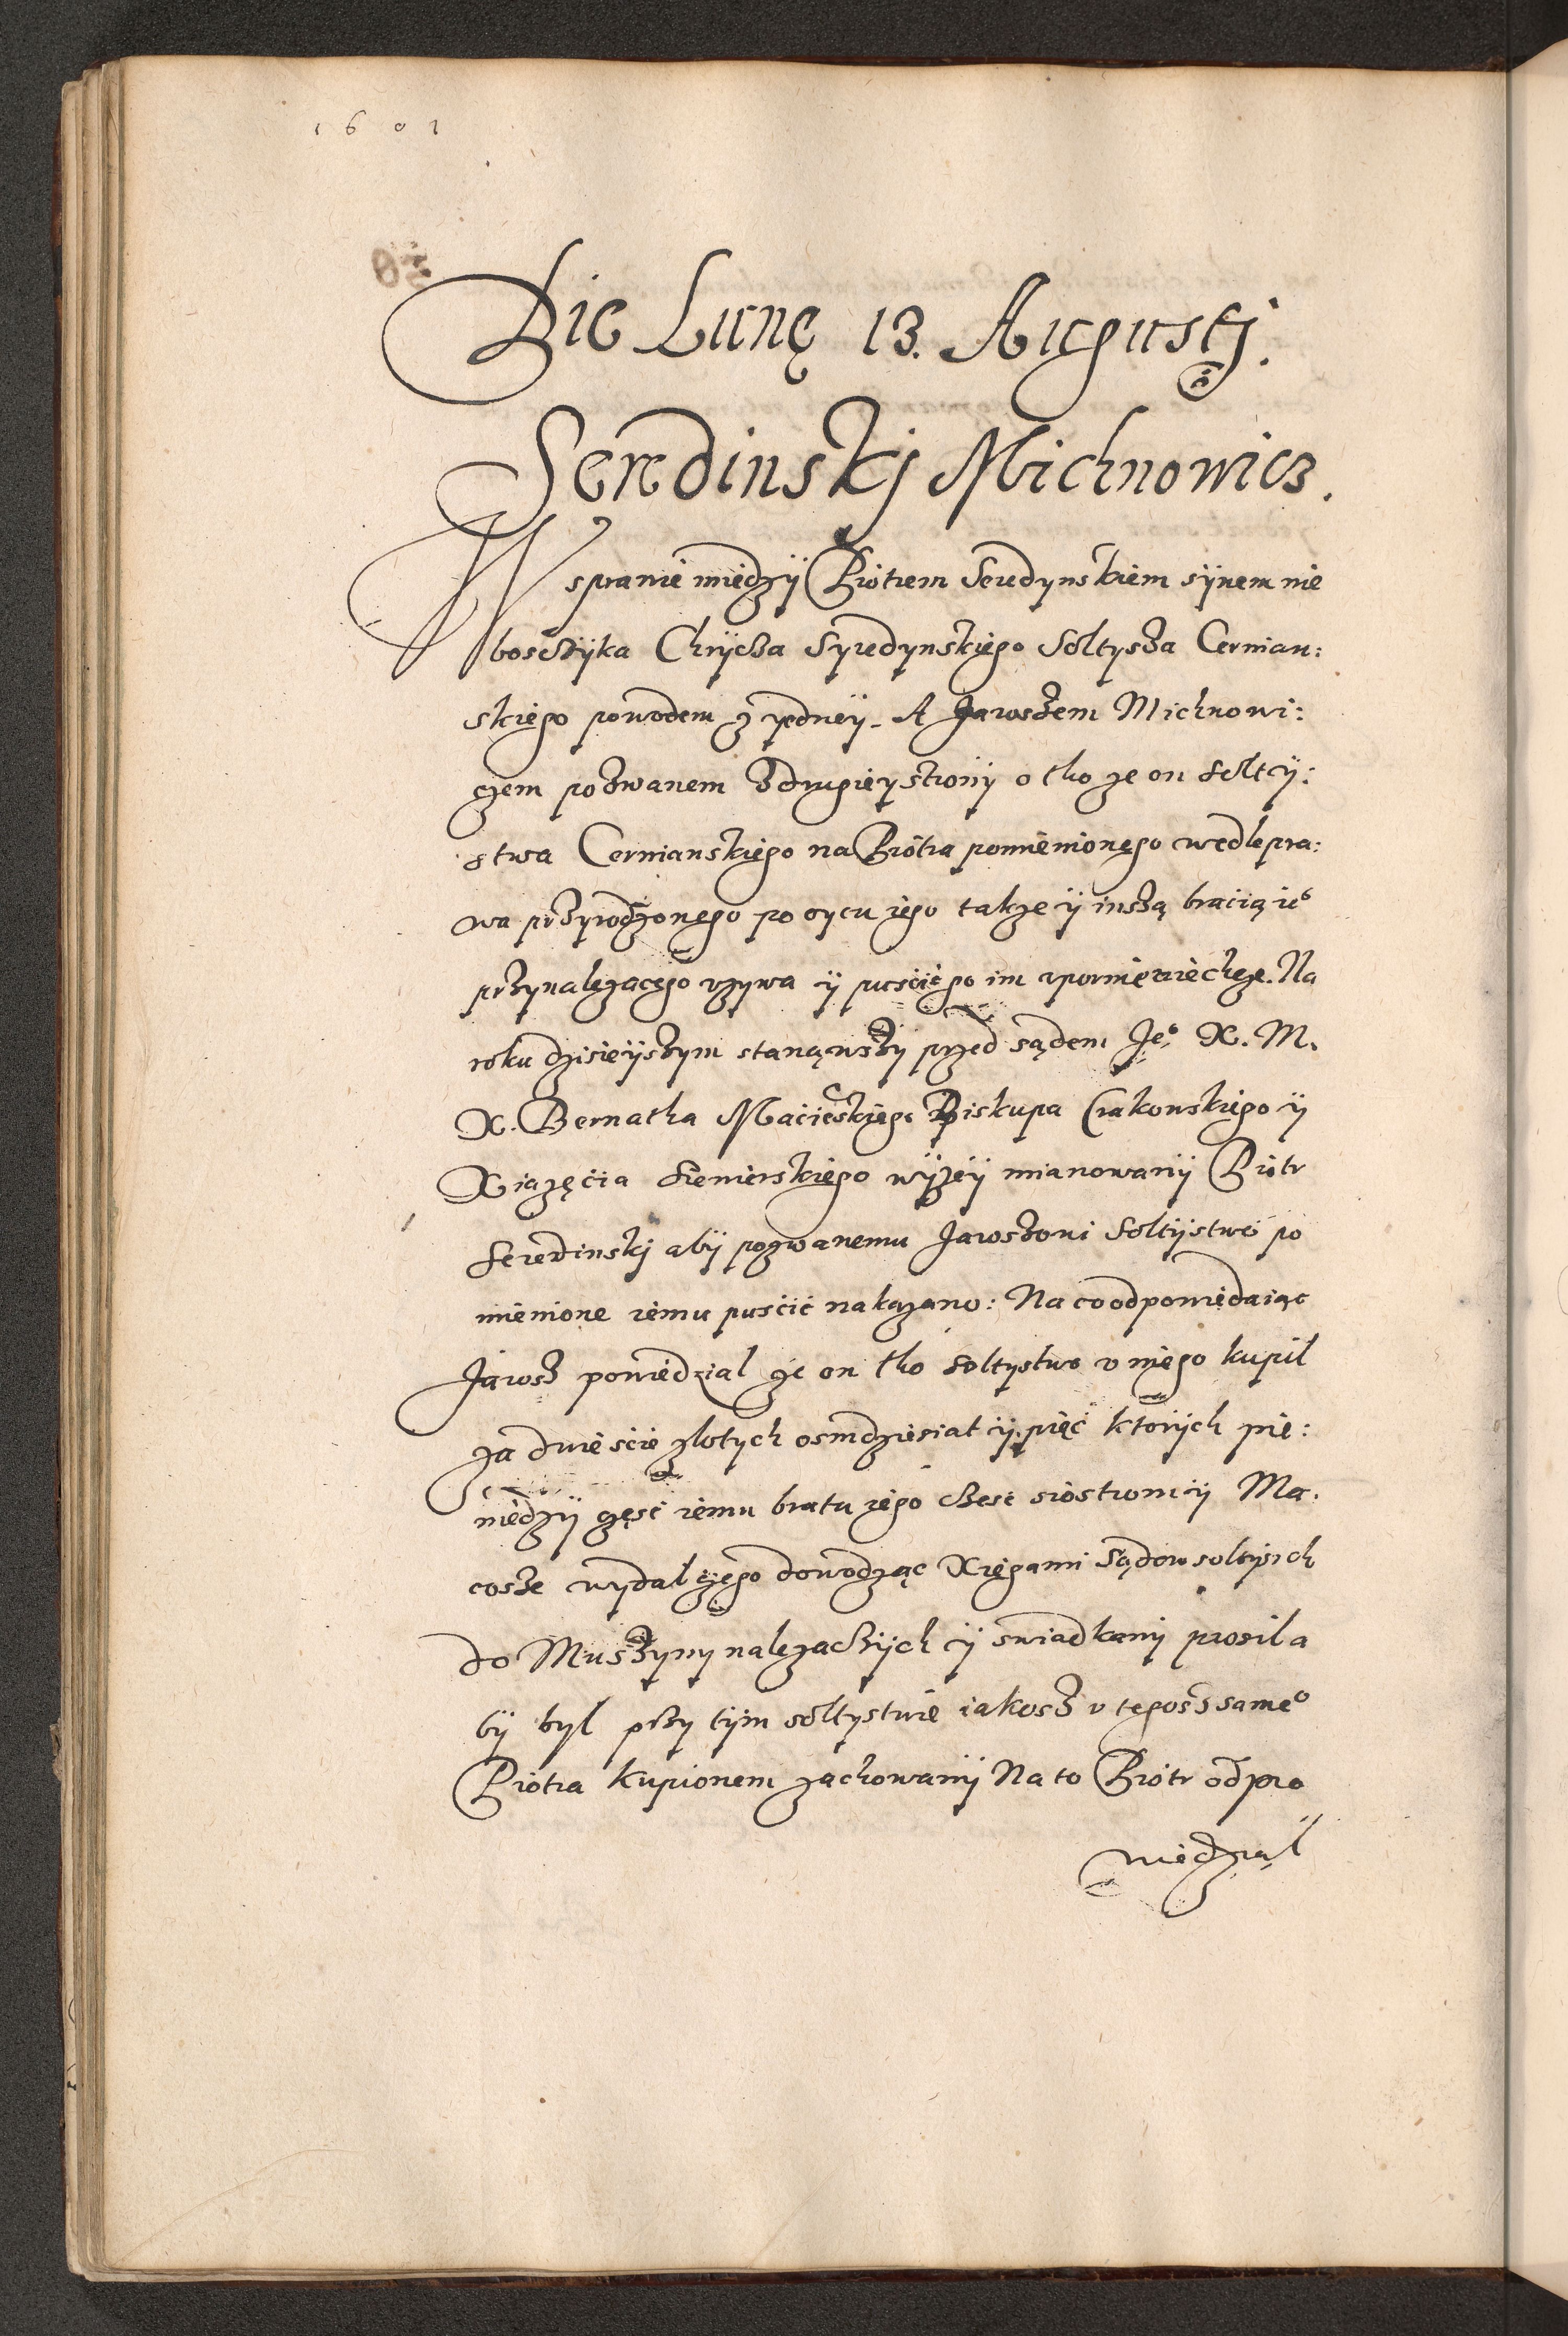 1601
Die Lunę 13. Augustj.
Seredinskj Michnowicz.
W sprawie międzÿ Piotrem Seredynskiem sÿnem nie
boscżÿka Chrÿcża Syredynskiego Soltysza Cernian:
skiego powodem z yedneÿ. A Jaroszem Michnowi:
czem pozwanem z drugiey stronÿ o tho ze on Soltÿ:
stwa Cernianskiego na Piotra pomienionego wedle pra:
wa przyrodzonego po oycu iego takze ÿ inszą bracią ie°
przynalezącego uzywa ÿ puscić go im upornie niechcze. Na
roku dzisieÿszym stanąwszy przed sądem Je° X. M.
X. Bernatha Macieiskiego Biskupa Crakowskiego ÿ
Xiazęćia Siewierskiego wÿzeÿ mianowanÿ Piotr
Seredinskj abÿ pozwanemu Jaroszowi Soltÿstwo po
mienione iemu puscić nakazano: Na co odpowiedaiąc
Jarosz powiedzial ze on tho Soltystwo v niego kupil
za dwiescie zlotych osmdziesiat ÿ pięć ktorÿch pie:
niedzÿ częsć iemu bratu iego czesc siostrom ÿ Ma:
cosze wydal czego dowodząc Xięgami Sądow soltÿsich
do Muszyny nalezaczÿch ÿ swiadkami prosil a
bÿ byl przy tÿm soltystwie iakosz v tegosz same°
Piotra kupionem zachowanÿ Na to Piotr odpo
wiedzial